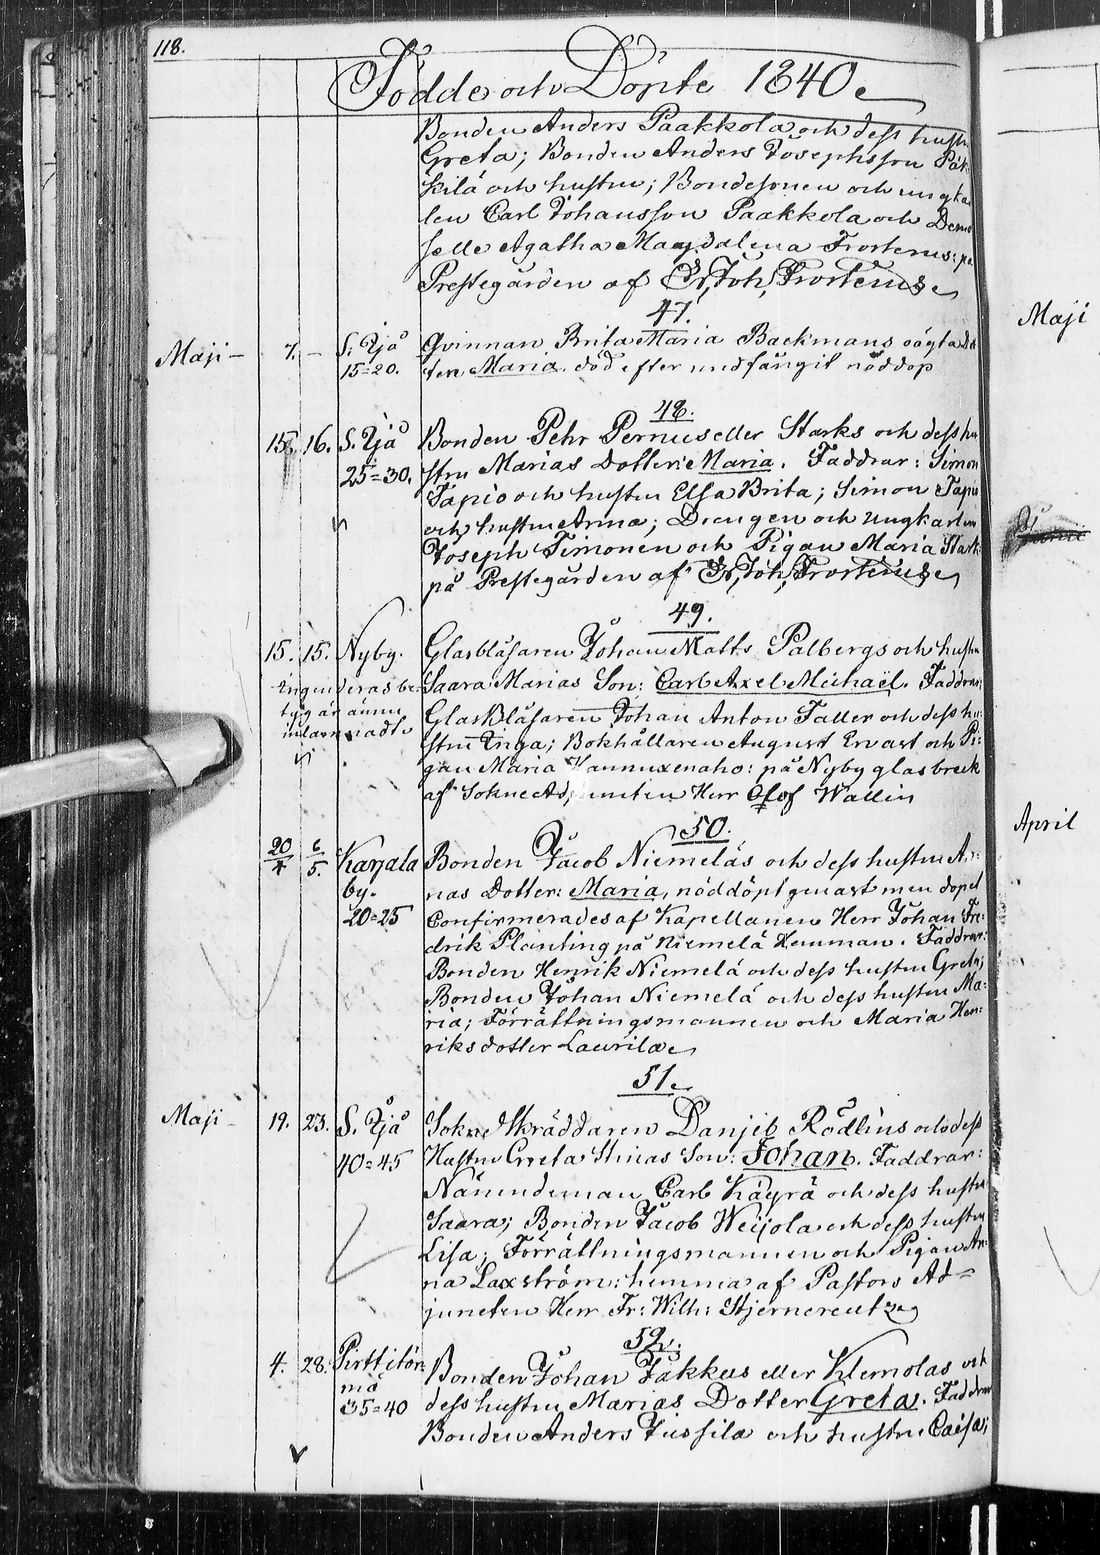 118.
Födde och Döpte 1840
Bonden Anders Paakkola och dess hustru
Greta; Bonden Anders Josephsson Päk-
kilä och hustru; Bondesonen och ungkar
len Carl Johansson Paakkola och Demoi
selle Agatha Magdalena Frosterus: på
Prestegården af Er, Joh, Frosterus
47.
Maji – 7. – S. Ijå Qvinnan Brita Maria Backmans oägta Dot
15=20. ter Maria, död efter undfångit nöddop
48.
15. 16. S. Ijå Bonden Pehr Pernus eller Starks och dess hu
25=30. stru Marias Dotter: Maria. Faddrar: Simon
Tapio och hustru Elsa Brita; Simon Tapio
och hustru Anna; Drengen och Ungkarlen
Joseph Timonen och Pigan Maria Stark:
på Prestegården af Er, Joh, Frosterus
49.
15. 15. Nyby. Glasblåsaren Johan Matts Palbergs och hustru
Ingenderas be- Saara Marias Son: Carl Axel Michaël. Faddrar:
tyg är ännu Glasblåsaren Johan Anton Faller och dess hu-
inlemnadt stru Inga; Bokhållaren August Ervast och Pi-
gan Maria Hannuxenaho: på Nyby glasbruk
af Sokne Adjuncten Herr Olof Wallin
50.
20/4 6/5. Karjala Bonden Jacob Niemeläs och dess hustru An-
by. nas Dotter: Maria, nöddöpt genast men dopet
20=25 Confirmerades af Kapellanen Herr Johan Fre-
drik Planting på Niemelä Hemman. Faddrar:
Bonden Henrik Niemelä och dess hustru Greta;
Bonden Johan Niemelä och dess hustru Ma-
ria; Förrättningsmannen och Maria Hen-
riksdotter Laurila
51.
Maji – 19. 23. S. Ijå Sokne Skräddaren Daniel Rödlins och dess
40=45 Hustru Greta Stinas Son: Johan. Faddrar:
Nämndeman Carl Käyrä och dess hustru
Saara; Bonden Jacob Weijola och dess hustru
Lisa; Förrättningsmannen och Pigan An-
na Laxström: hemma af Pastors Ad=
juncten Herr Fr: Wilh: Stjerncreutz
52.
4. 28. Pirttitör Bonden Johan Jakkus eller Klemolas och
mä dess hustru Marias Dotter Greta. Faddrar
35=40 Bonden Anders Jussila och hustru Caisa;
Maji
Junii
April